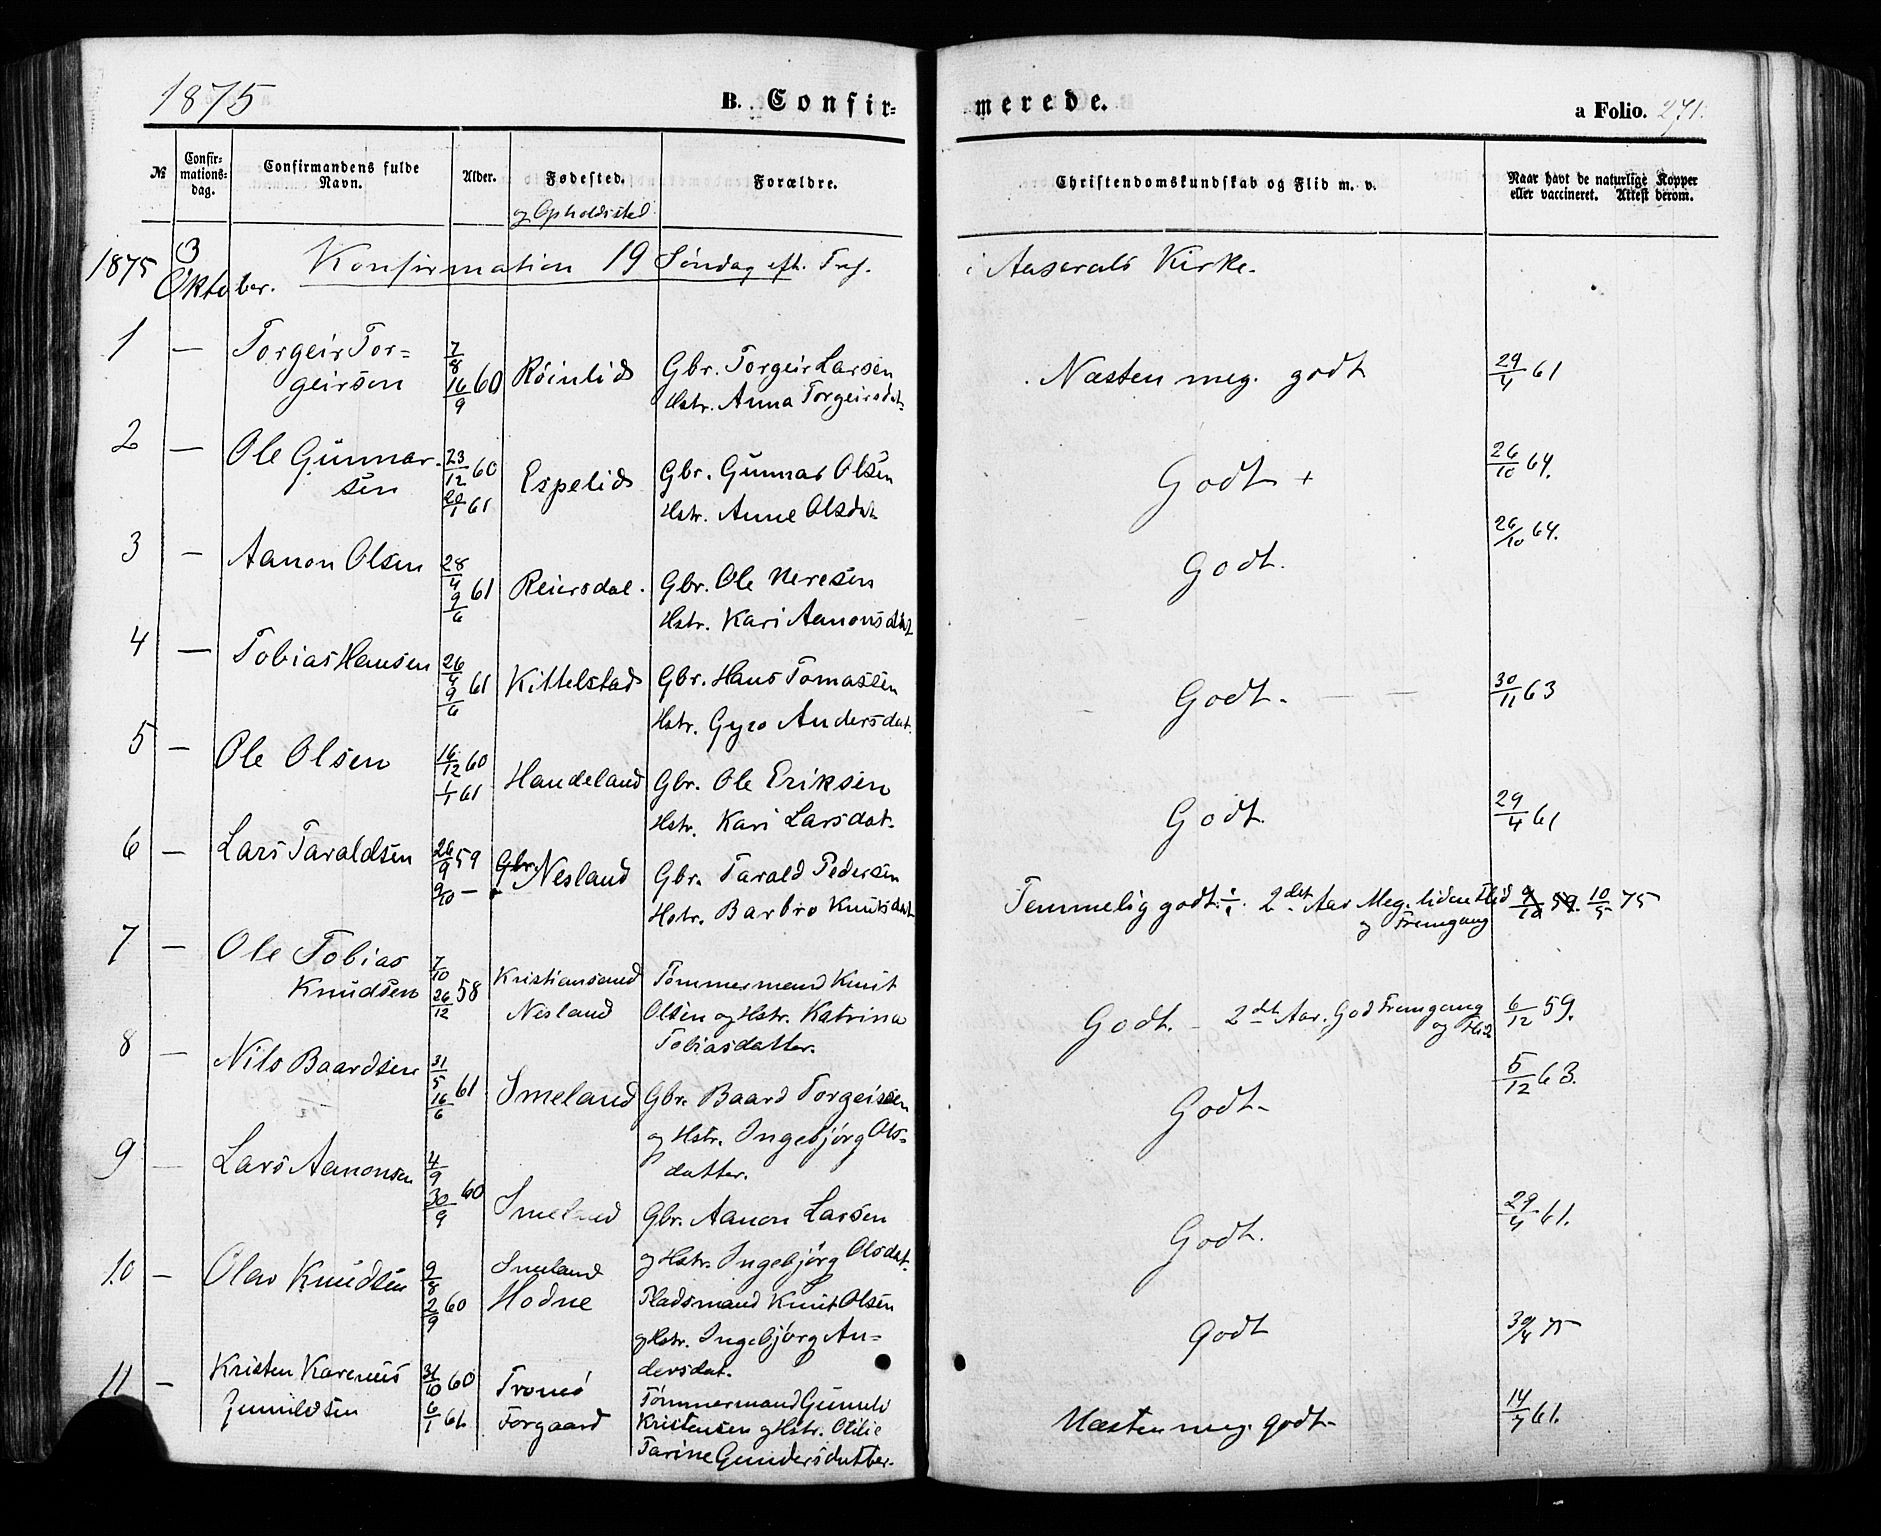 1875
B. Confir-
merede.
a Folio. 271.
No
Confir-
mations-
dag.
Confirmandens fulde
Navn.
Alder.
Fødested.
og Opholdssted
Forældre.
Christendomskundskab og Flid m. v.
Naar havt de naturlige Kopper
eller vaccineret. Attest derom.
1875 3 Oktober. Konfirmation 19 Søndag eft. Tref. i Aaserals Kirke.
1 — Torgeir Tor= 7/8
geirson 16/9 60 Röinlid Gbr. Torgeir Larsen Næsten meg. godt 29/4 61
Hstr. Anna Torgeirsdat.
2 — Ole Gunnar- 23/12 60
sen 20/1 61 Espelid Gbr. Gunnar Olsen Godt + 26/10 64.
Hstr. Anne Olsdat
3 — Aanon Olsen 28/4
9/6 61 Reiersdal. Gbr. Ole Neresen Godt. 26/10 64.
Hstr. Kari Aanonsdat
4 — Tobias Hansen 26/4
9/6 61 Kittelstad Gbr. Hans Tomassen Godt. — — 30/11 63
Hstr. Gyro Andersdat.
5 — Ole Olsen 16/12 60
1/1 61 Handeland Gbr. Ole Eriksen Godt. 29/4 61
Hstr. Kari Larsdat.
6 — Lars Taraldsen 26/9 59
9/10 — Gbr. Nesland Gbr. Tarald Pedersen Temmelig godt ÷. 2det Aar Meg. liden Flid 9/10 59. 10/5 75
Hstr. Barbro Knutsdat og Fremgang
7 — Ole Tobias 7/10
Knudsen 26/12 58 Kristiansand Tømmermand Knut Godt. - 2det Aar. God Fremgang 6/12 59.
Nesland Olsen og Hstr. Katrina og Flid
Tobiasdatter.
8 — Nils Baardsen 31/5
16/6 61 Smeland Gbr. Baard Torgeirsen Godt- 5/12 63.
og Hstr. Ingebjörg Ols-
datter.
9 — Lars Aanonsen 4/9
30/9 60 Smeland Gbr. Aanon Larsen Godt. 29/4 61.
og Hstr. Ingebjörg Olsdat.
10 — Olav Knudsen 9/8
2/9 60 Smeland
Hodne Pladsmand Knut Olsen Godt 30/4 75
og Hstr. Ingebjörg An-
dersdat.
11 — Kristen Karenius 31/10 60
Gunuldsen 6/1 61. Tromö
Forgaard Tömmermand Gunuld Næsten meg. godt- 14/7 61.
Kristensen og Hstr. Otilie
Tarine Gundersdatter.